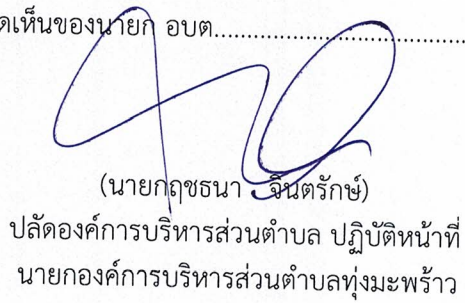 ดเห็นของนายก อบต.......................................
(นายกฤชธนา จินตรักษ์)
ปลัดองค์การบริหารส่วนตำบล ปฏิบัติหน้าที่
นายกองค์การบริหารส่วนตำบลทุ่งมะพร้าว